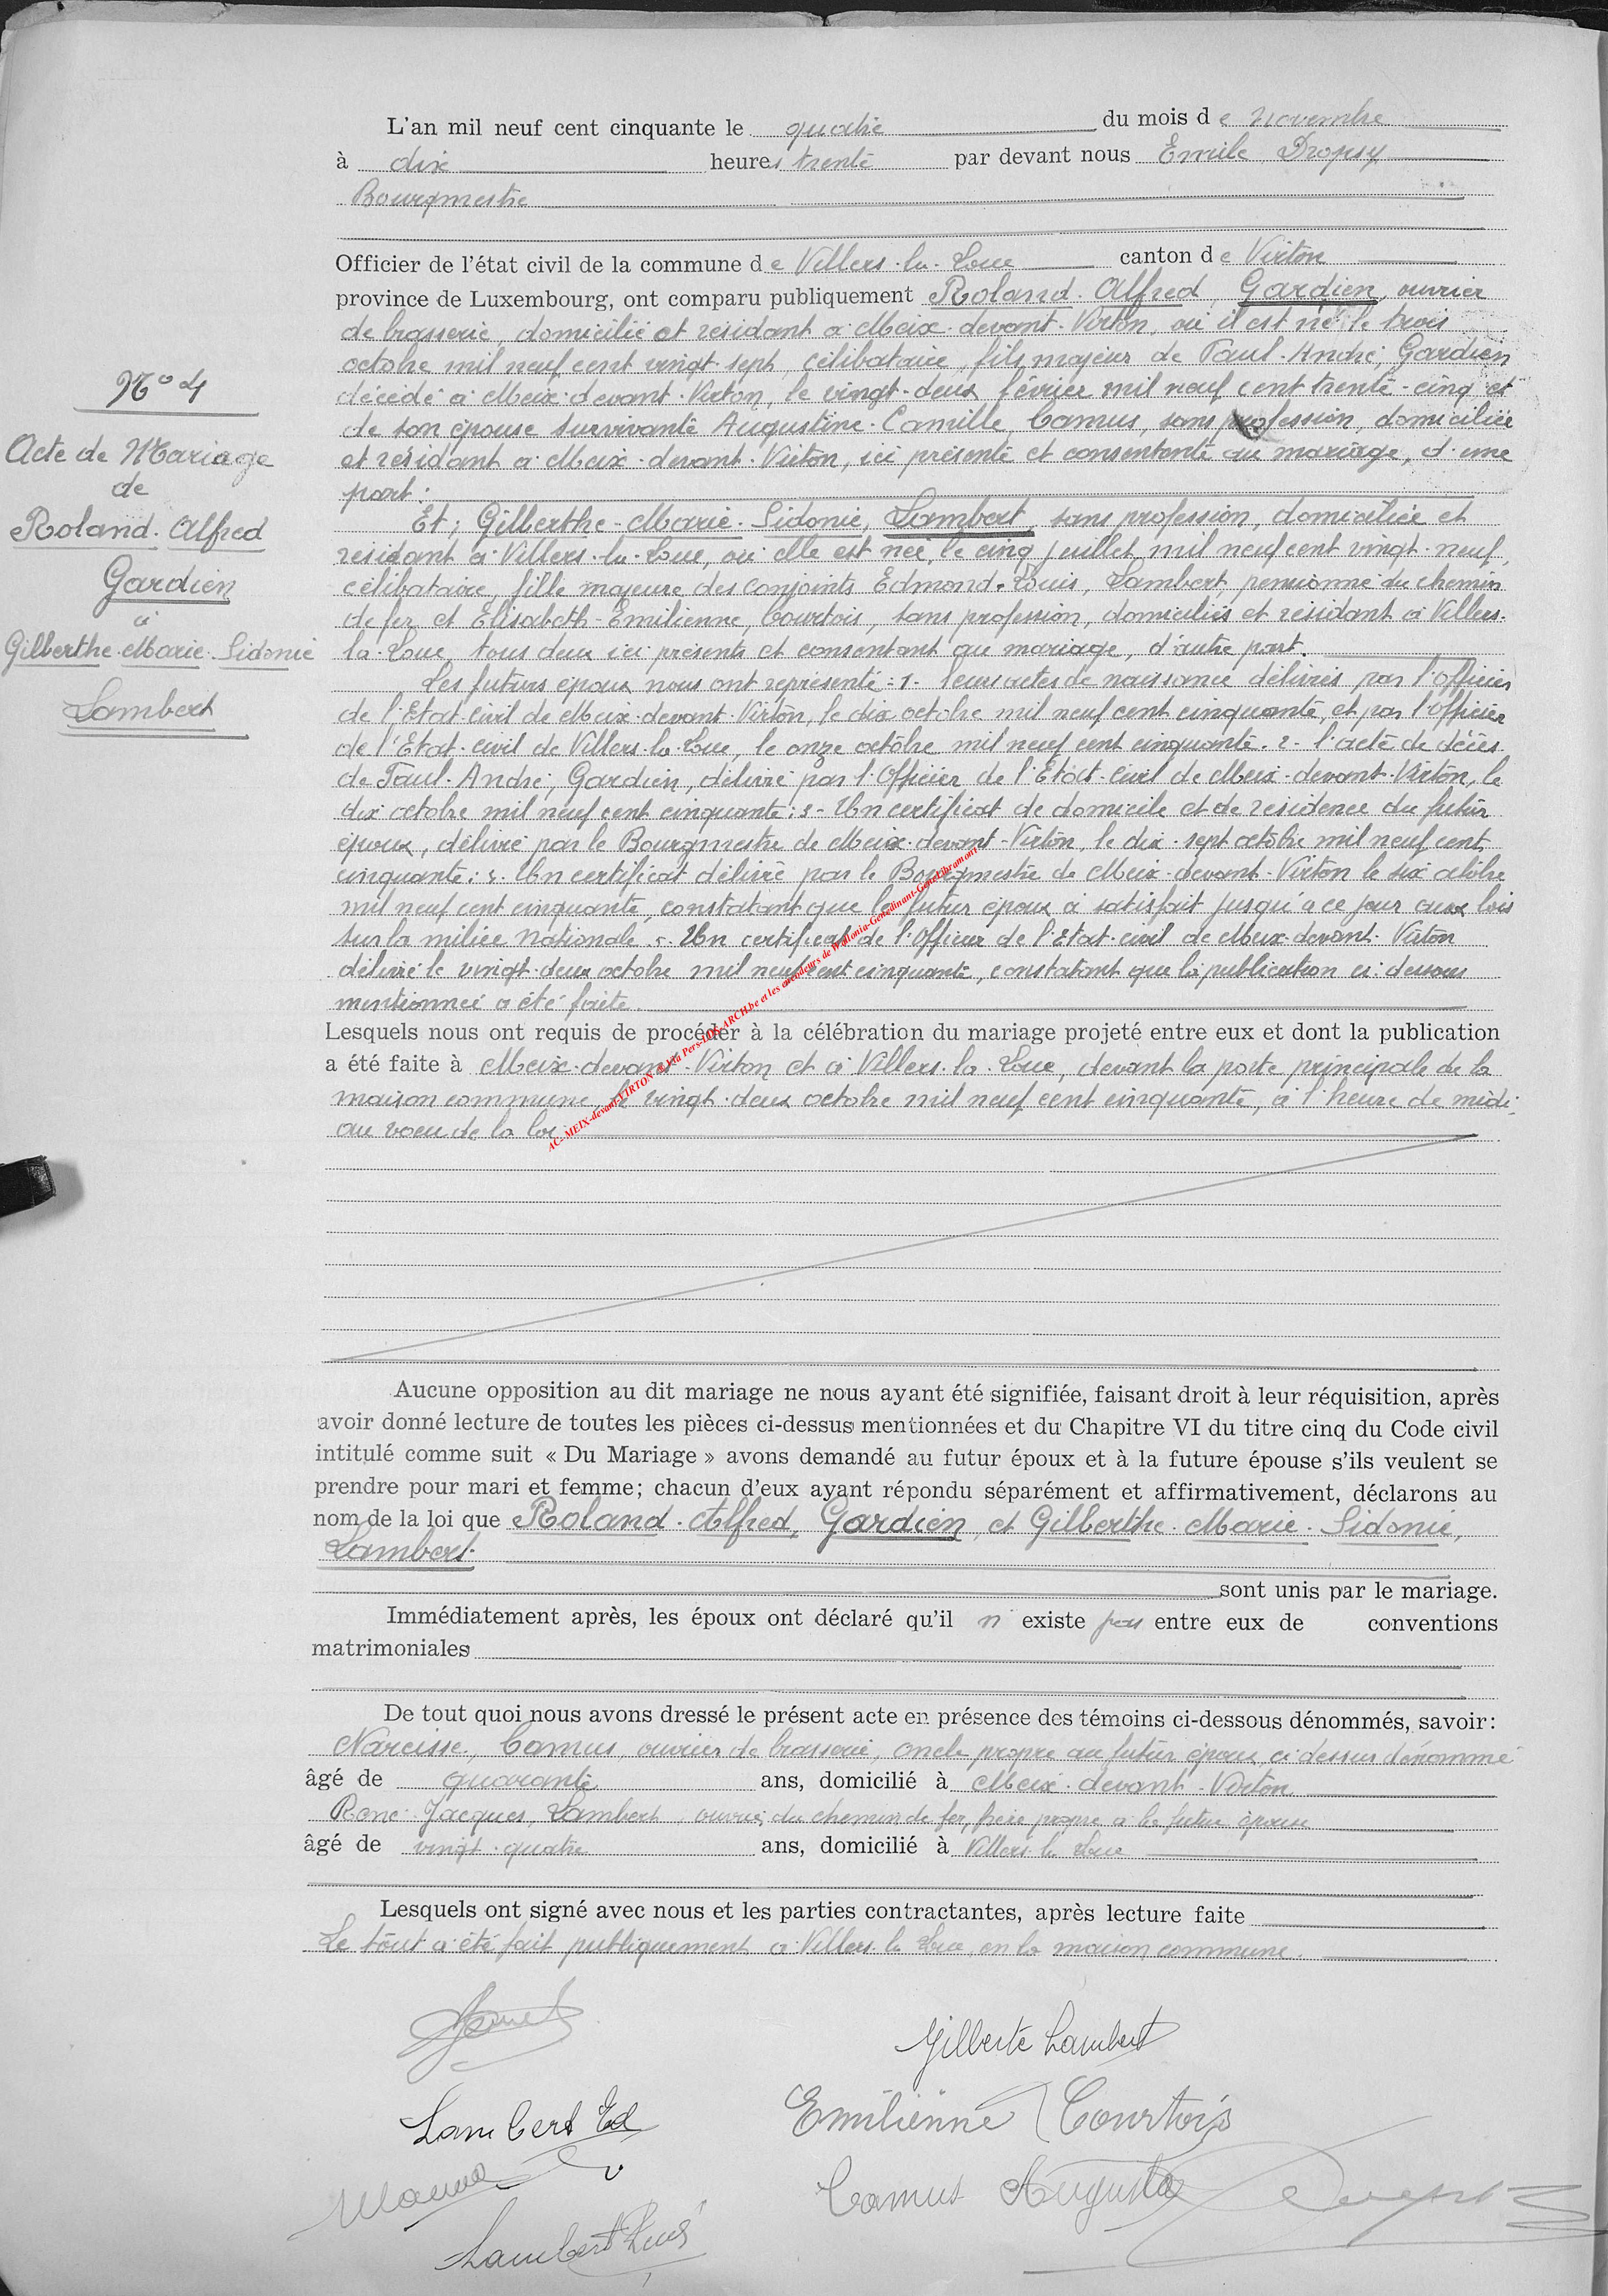 L'an mil neuf cent cinquante le quatre du mois de Novembre
à dix heures trente par devant nous Emile Dropsy
Bourgmestre
Officier de l'état civil de la commune de Villers-la-Loue canton de Virton
province de Luxembourg, ont comparu publiquement Roland-Alfred, Gardien, ouvrier
de brasserie, domicilié et résidant à Meix-devant-Virton, où il est né le trois
octobre mil neuf cent vingt-sept, célibataire, fils majeur de Paul-André, Gardien
décédé à Meix-devant-Virton, le vingt-deux février mil neuf cent trente-cinq et
de son épouse survivante Augustine-Camille, Camus, sans profession, domiciliée
et résidant à Meix-devant-Virton, ici présente et consentante au mariage, d'une
part:
N° 4
Acte de Mariage
de
Roland-Alfred
Gardien
à
Gilberthe-Marie-Sidonie
Lambert
Et; Gilberthe-Marie-Sidonie, Lambert, sans profession, domiciliée et
résidant à Villers-la-Loue, où elle est née, le cinq juillet mil neuf cent vingt-neuf,
célibataire, fille majeure des conjoints Edmond-Louis, Lambert, pensionné du chemin
de fer et Elisabeth-Emilienne, Courtois, sans profession, domiciliés et résidant à Villers-
la-Loue, tous deux ici présents et consentant au mariage, d'autre part.
Les futurs époux nous ont représenté: 1- leurs actes de naissance délivrés par l'Officier
de l'Etat-Civil de Meix-devant-Virton, le dix octobre mil neuf cent cinquante, et par l'Officier
de l'Etat-civil de Villers-la-Loue, le onze octobre mil neuf cent cinquante. 2- l'acte de décès
de Paul-André, Gardien, délivré par l'Officier de l'Etat-civil de Meix-devant-Virton, le
dix octobre mil neuf cent cinquante: 3- Un certificat de domicile et de résidence du futur
époux, délivré par le Bourgmestre de Meix-devant-Virton, le dix-sept octobre mil neuf cent
cinquante: Un certificat délivré par le Bourgmestre de Meix-devant-Virton le six octobre
mil neuf cent cinquante, constatant que le futur époux a satisfait jusqu'à ce jour aux lois
sur la milice Nationale. 5. Un certificat de l'Officier de l'Etat-civil de Meix-devant-Virton
délivré le vingt-deux octobre mil neuf cent cinquante, constatant que la publication ci-dessous
mentionnée a été faite.
Lesquels nous ont requis de procéder à la célébration du mariage projeté entre eux et dont la publication
a été faite à Meix-devant-Virton et à Villers-la-Loue, devant la porte principale de la
maison commune, le vingt-deux octobre mil neuf cent cinquante, à l'heure de midi
au voeu de la loi
AC-MEIX-devant-VIRTON
Aucune opposition au dit mariage ne nous ayant été signifiée, faisant droit à leur réquisition, après
avoir donné lecture de toutes les pièces ci-dessus mentionnées et du Chapitre VI du titre cinq du Code civil
intitulé comme suit « Du Mariage » avons demandé au futur époux et à la future épouse s'ils veulent se
prendre pour mari et femme; chacun d'eux ayant répondu séparément et affirmativement, déclarons au
nom de la loi que Roland-Alfred, Gardien, et Gilberthe-Marie-Sidonie,
Lambert.
sont unis par le mariage.
Immédiatement après, les époux ont déclaré qu'il n'existe pas entre eux de conventions
matrimoniales
De tout quoi nous avons dressé le présent acte en présence des témoins ci-dessous dénommés, savoir:
Narcisse, Camus, ouvrier de brasserie, oncle propre au futur époux ci-dessus dénommé
âgé de quarante ans, domicilié à Meix-devant-Virton
René-Jacques, Lambert, ouvrier du chemin de fer, frère propre à la future épouse
âgé de vingt-quatre ans, domicilié à Villers-la-Loue
Lesquels ont signé avec nous et les parties contractantes, après lecture faite
Le tout a été fait publiquement à Villers-la-Loue, en la maison commune.
Gilberte Lambert
Lambert Ed
Emilienne Courtois
Camus Augusta
Lambert René